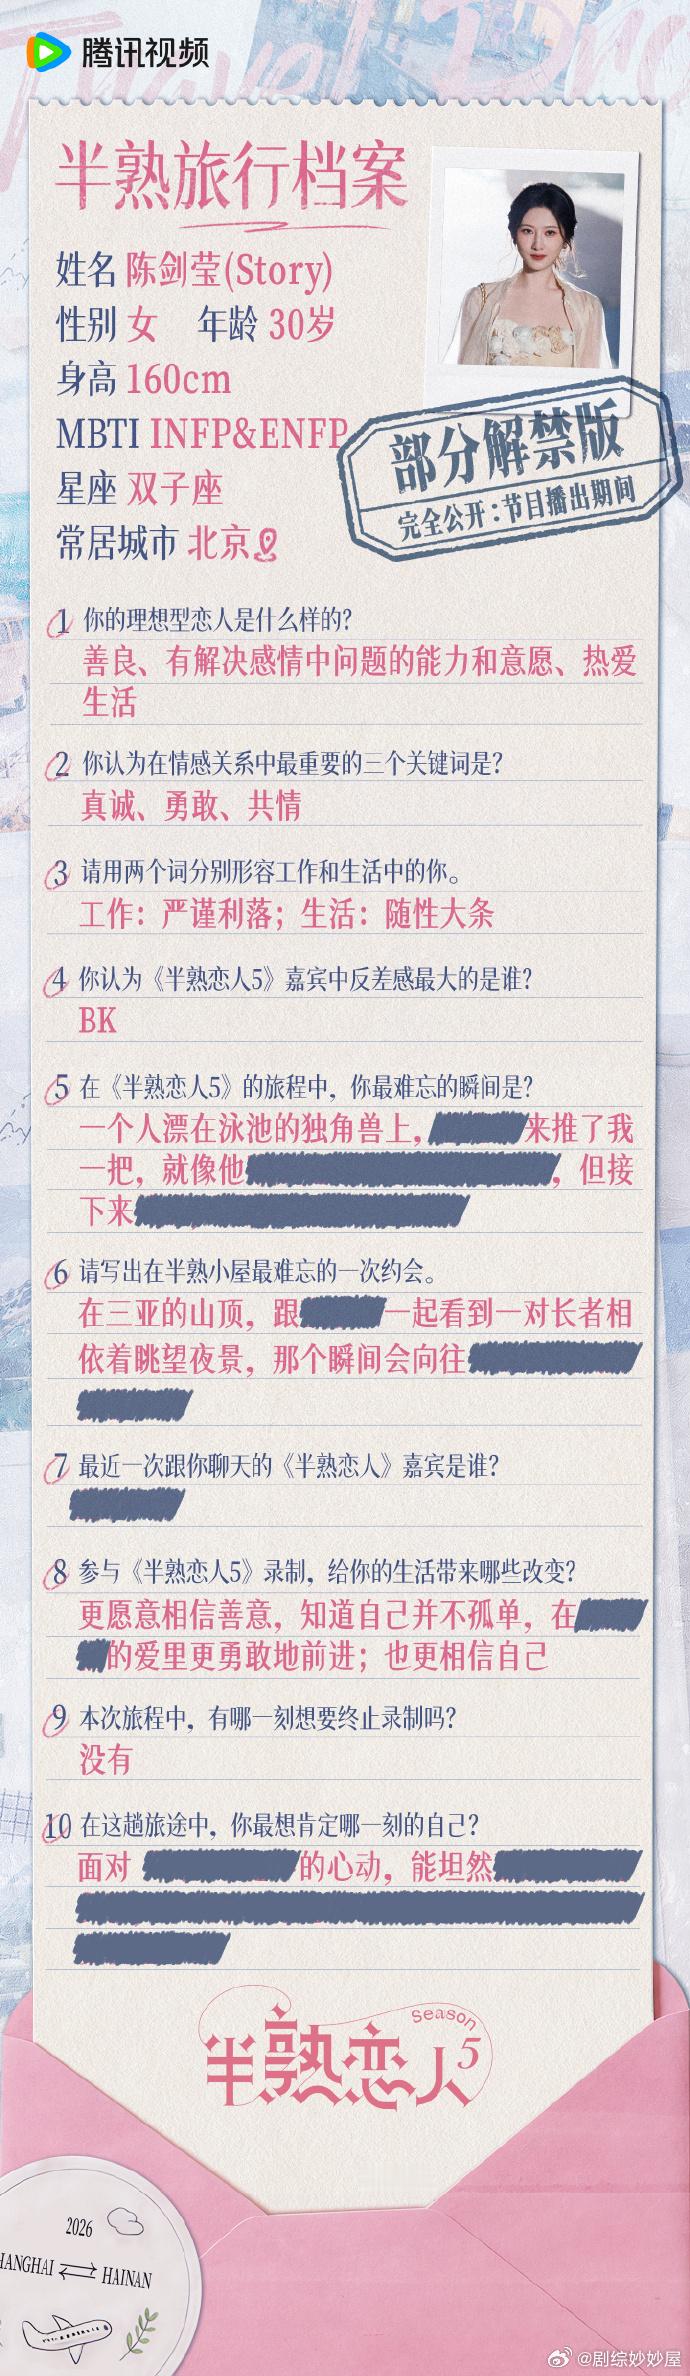 腾讯视频
半熟旅行档案
姓名 陈剑莹(Story)
性别 女 年龄 30岁
身高 160cm
MBTI INFP&ENFP
星座 双子座
常居城市 北京
部分解禁版
完全公开:节目播出期间
1 你的理想型恋人是什么样的?
善良、有解决感情中问题的能力和意愿、热爱
生活
2 你认为在情感关系中最重要的三个关键词是?
真诚、勇敢、共情
3 请用两个词分别形容工作和生活中的你。
工作：严谨利落；生活：随性大条
4 你认为《半熟恋人5》嘉宾中反差感最大的是谁?
BK
5 在《半熟恋人5》的旅程中，你最难忘的瞬间是?
一个人漂在泳池的独角兽上，来推了我
一把，就像他，但接
下来
6 请写出在半熟小屋最难忘的一次约会。
在三亚的山顶，跟一起看到一对长者相
依着眺望夜景，那个瞬间会向往
7 最近一次跟你聊天的《半熟恋人》嘉宾是谁?
8 参与《半熟恋人5》录制，给你的生活带来哪些改变?
更愿意相信善意，知道自己并不孤单，在
的爱里更勇敢地前进；也更相信自己
9 本次旅程中，有哪一刻想要终止录制吗?
没有
10 在这趟旅途中，你最想肯定哪一刻的自己?
面对 的心动，能坦然
半熟恋人 Season 5
2026
HANGHAI ⇌ HAINAN
@剧综妙妙屋